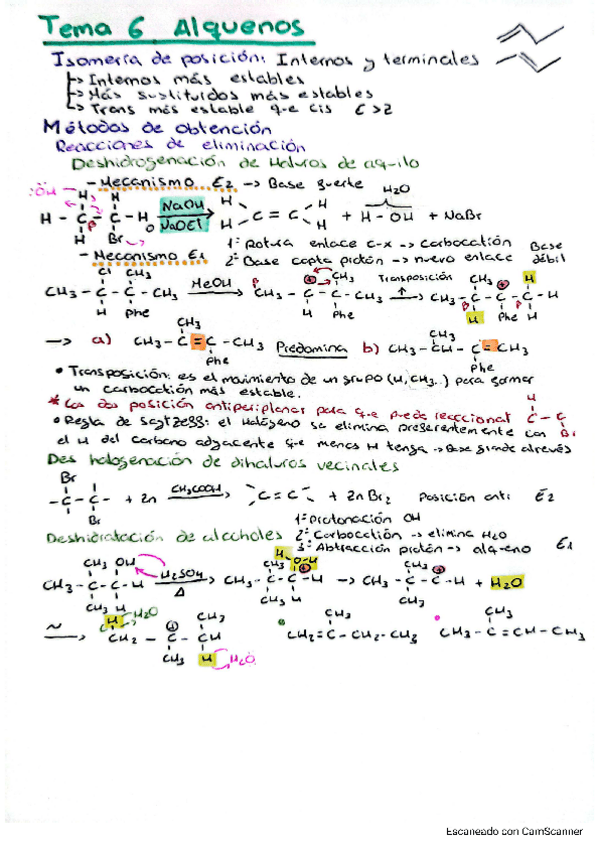 Tema 6 Alquenos
Isomería de posición: Internos y terminales
↳ Internos más estables
↳ Más sustituidos más estables
↳ Trans más estable que cis C>2
Métodos de obtención
Reacciones de eliminación
Deshidrogenación de Haluros de aquilo
- Mecanismo E2 → Base fuerte
H2O
:ÖH H H
H - C - C - H NaOH / NaOEt H C = C H + H - OH + NaBr
H Br
β
1º Rotura enlace C-X → Carbocatión Base
- Mecanismo E1 2º Base capta protón → nuevo enlace débil
Cl CH3
CH3 - C - C - CH3 MeOH → CH3 - C - C - CH3 Transposición → CH3 - C - C - C - H
H Phe H Phe H Phe H
→ a) CH3 - C = C - CH3 Predomina b) CH3 - CH - C = CH3
CH3 Phe CH3 Phe
• Transposición: es el movimiento de un grupo (H, CH3..) para formar
un carbocatión más estable.
* Los dos posición antiperiplanar para que puede reaccional H C - C Br
• Regla de Sagtzeff: el Halógeno se elimina preferentemente con
el H del carbono adyacente que menos H tenga → Base grande alrevés
Des halogenación de dihaluros vecinales
Br
- C - C - + Zn CH3COOH → C = C + ZnBr2 Posición anti E2
Br
1º Protonación OH
Deshidratación de alcoholes 2º Carbocatión → elimina H2O
3º Abtracción protón → alqueno E1
CH3 OH CH3 H O-H CH3
CH3 - C - C - H H2SO4 / Δ → CH3 - C - C - H → CH3 - C - C - H + H2O
CH3 H CH3 H CH3
H H2O CH3 CH3 CH3
~ → CH2 - C - CH CH2=C - CH2 - CH3 CH3 - C = CH - CH3
CH3 H H2O
Escaneado con CamScanner